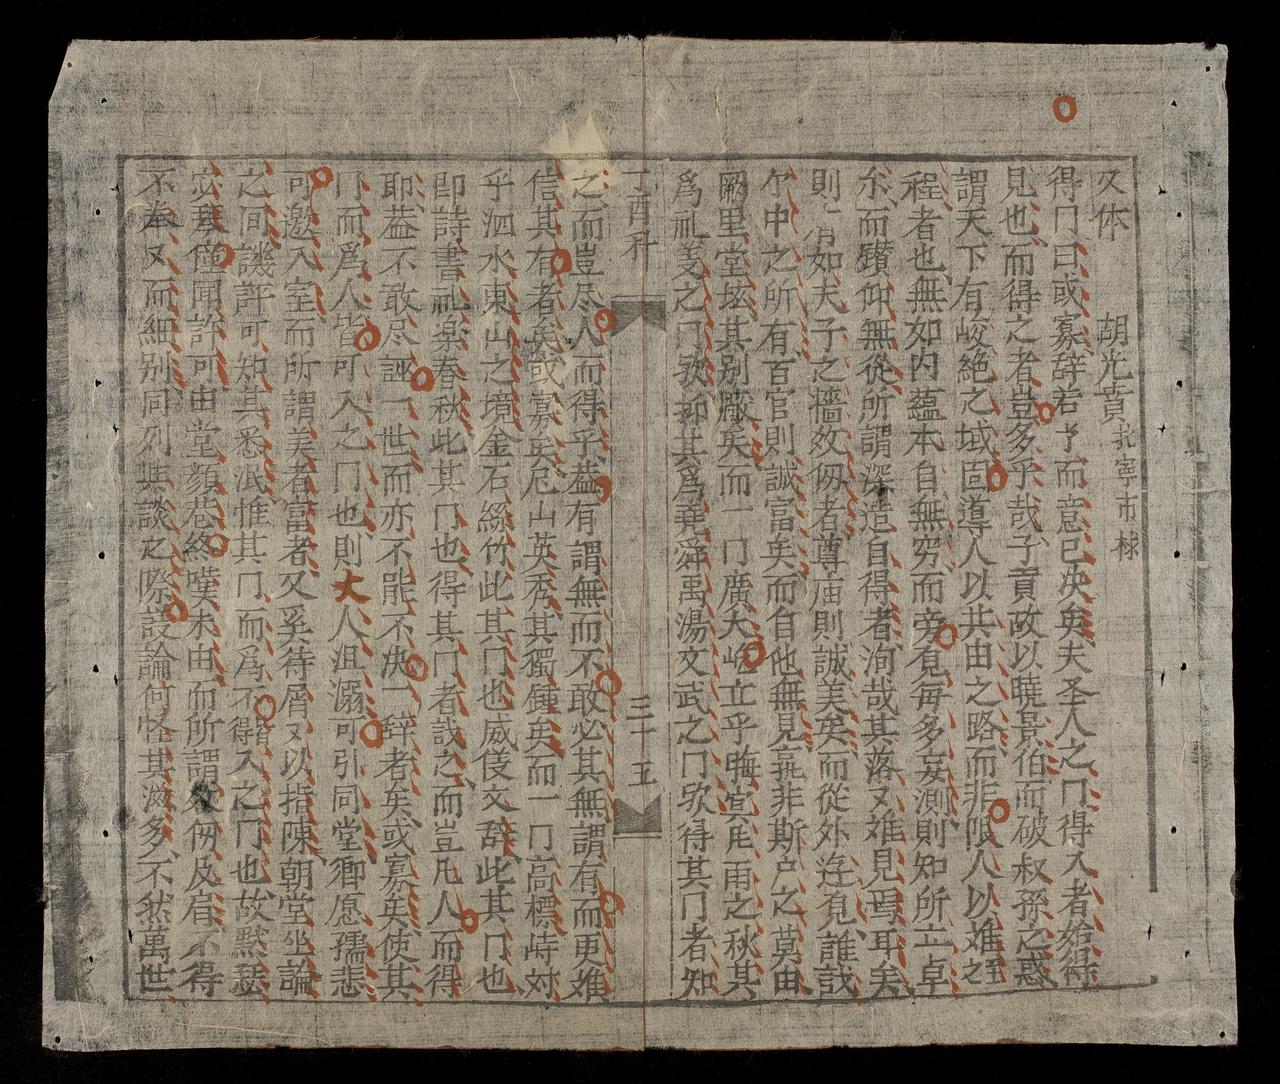 又体 胡光賁 北寧市梂
得门曰或寡辞君予而意已决矣夫圣人之门得入者始得
見也而得之者豈多乎哉子貢故以曉景伯而破叔孫之惑
謂天下有峻絶之域固導人以共由之路而非限人以难至
程者也無如内蕴本自無穷而旁覓每多妄測則知所立卓
尔而鑽仰無從所謂深造自得者洵哉其落又难見焉耳矣
則 如夫子之墻效仭者尊庙則誠美矣而從外迬覓誰哉
个中之所有百官則誠富矣而自他無見 非斯户之莫由
闕里堂垓其别厰矣而一门廣大屹立乎晦冥凨雨之秋其
爲礼羙之门欤抑其爲堯舜禹湯文武之门欤得其门者知
丁酉科 三十五
之而豈尽人而得乎葢有謂無而不敢必其無謂有而更难
信其有者矣或寡矣尼山英秀其獨鍾矣而一门高標峙对
乎泗水東山之境金石絲竹此其门也威仪文辞此其门也
即詩書礼楽春秋此其门也得其门者哉之而豈凡人而得
耶葢不敢尽誣一世而亦不能不决一辞者矣或寡矣使其
门而爲人皆可入之门也則大人沮溺可引同堂鄉愿孺悲
可邀入室而所謂美者富者又奚待屑又以指陳朝堂坐論
之间譏評可知其悉泯惟其门而爲不得入之门也故默瑟
 僅囬許可由堂顔巷終嘆未由而所謂效仭及肩不得
不奉又而細别同列共談之際設論何怪其滋多不然萬世